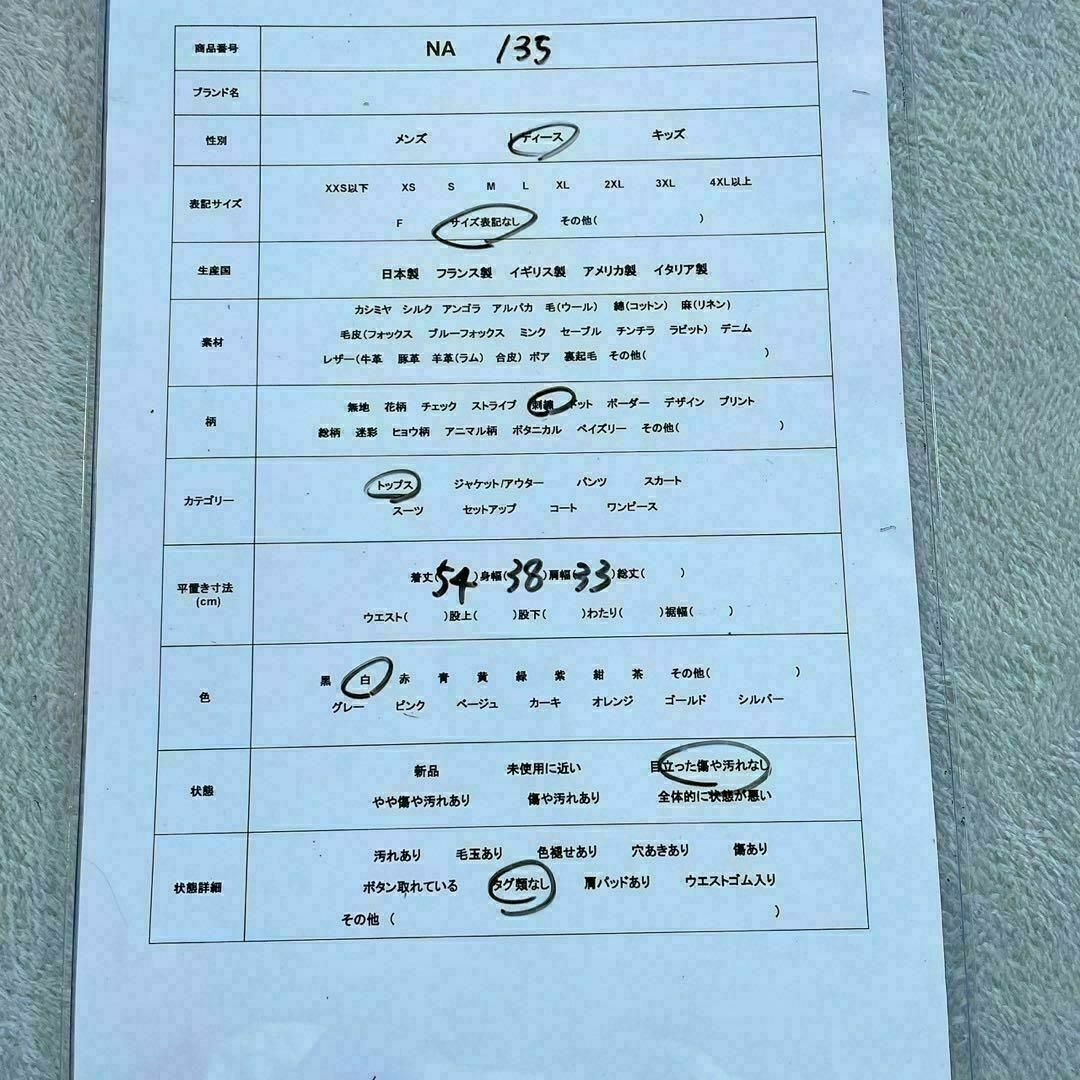 商品番号 NA 135
ブランド名
性別 メンズ レディース キッズ
表記サイズ
XXS以下 XS S M L XL 2XL 3XL 4XL以上
F サイズ表記なし その他( )
生産国 日本製 フランス製 イギリス製 アメリカ製 イタリア製
素材
カシミヤ シルク アンゴラ アルパカ 毛(ウール) 綿(コットン) 麻(リネン)
毛皮(フォックス ブルーフォックス ミンク セーブル チンチラ ラビット) デニム
レザー(牛革 豚革 羊革(ラム) 合皮) ボア 裏起毛 その他( )
柄
無地 花柄 チェック ストライプ 刺繍 ドット ボーダー デザイン プリント
総柄 迷彩 ヒョウ柄 アニマル柄 ボタニカル ペイズリー その他( )
カテゴリー
トップス ジャケット/アウター パンツ スカート
スーツ セットアップ コート ワンピース
平置き寸法
(cm)
着丈(54)身幅(38)肩幅(33)総丈( )
ウエスト( )股上( )股下( )わたり( )裾幅( )
色
黒 白 赤 青 黄 緑 紫 紺 茶 その他( )
グレー ピンク ベージュ カーキ オレンジ ゴールド シルバー
状態
新品 未使用に近い 目立った傷や汚れなし
やや傷や汚れあり 傷や汚れあり 全体的に状態が悪い
状態詳細
汚れあり 毛玉あり 色褪せあり 穴あきあり 傷あり
ボタン取れている タグ類なし 肩パッドあり ウエストゴム入り
その他 ( )